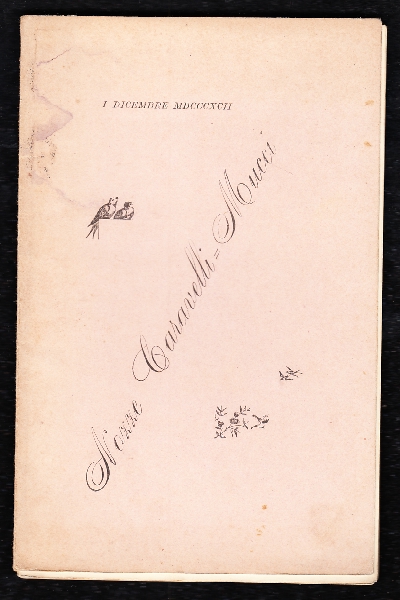 I DICEMBRE MDCCCXCII
Nozze Caravelli=Mucci